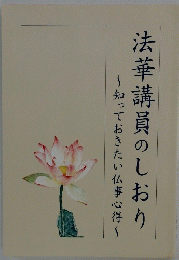 法華講員のしおり
～知っておきたい仏事心得～